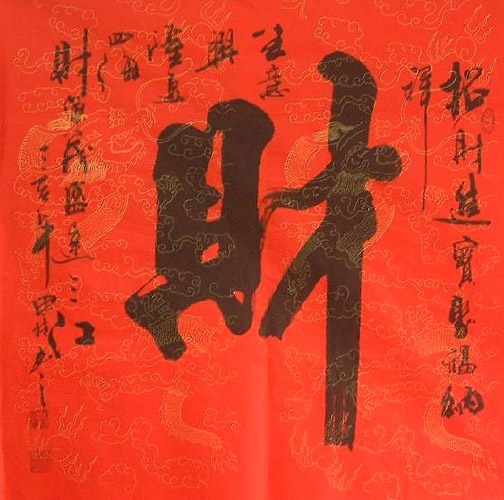 招財進寶聚福納
祥
財
生意
興
隆通
四海
財源茂盛達三江
年